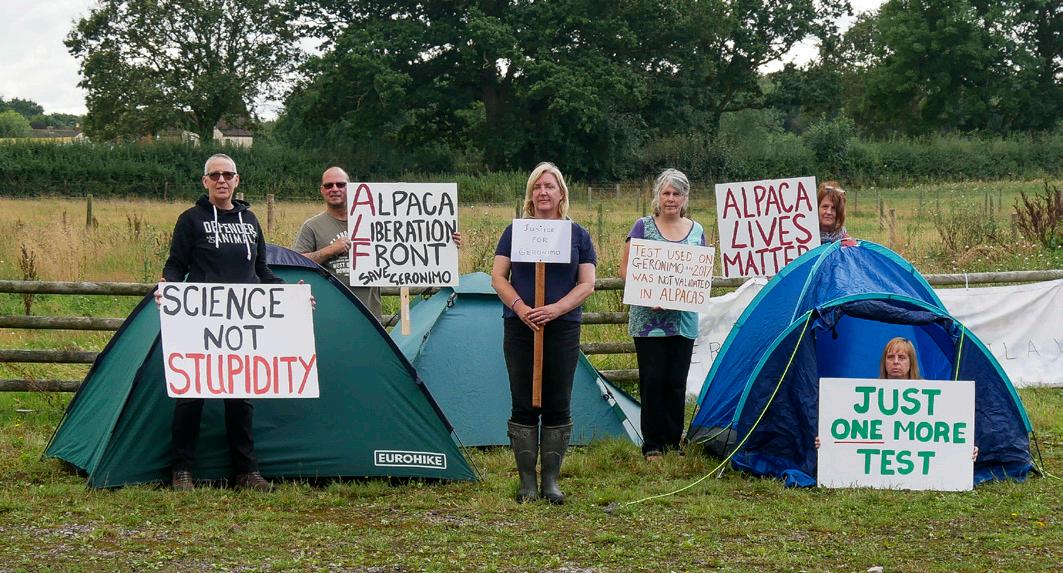 DEFENDER
OF
ANIMALS
SCIENCE
NOT
STUPIDITY
ALPACA
LIBERATION
FRONT
SAVE GERONIMO
EUROHIKE
JUSTICE
FOR
GERONIMO
TEST USED ON
GERONIMO IN 2017
WAS NOT VALIDATED
IN ALPACAS
ALPACA
LIVES
MATTER
JUST
ONE MORE
TEST